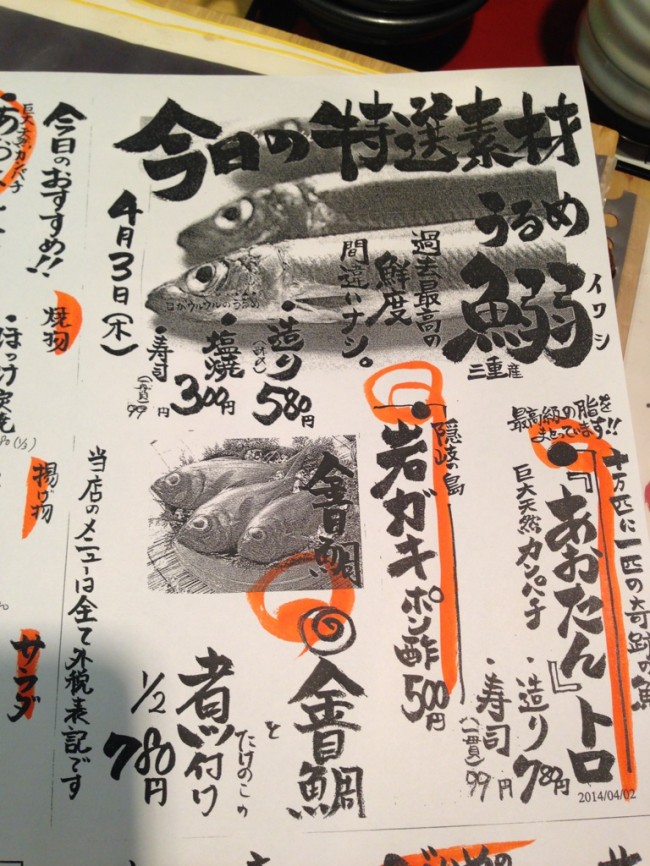 今日の特選素材
うるめ
鰯
イワシ
三重産
過去最高の
鮮度
間違いナシ。
・造り
580円
・塩焼
300円
・寿司
(一貫)
99円
4月3日(木)
十万匹に一匹の奇跡の魚
最高級の脂を
まとっています!!
・『あおたん』トロ
巨大天然カンパチ
・造り780円
・寿司
(一貫)99円
2014/04/02
隠岐の島
・岩ガキポン酢
500円
金目鯛
金目鯛
と
たけのこの
煮付け
1/2
780円
当店のメニューは全て外税表記です
今日のおすすめ!!
巨大天然カンパチ
焼物
・ほっけ炭焼
揚げ物
サラダ